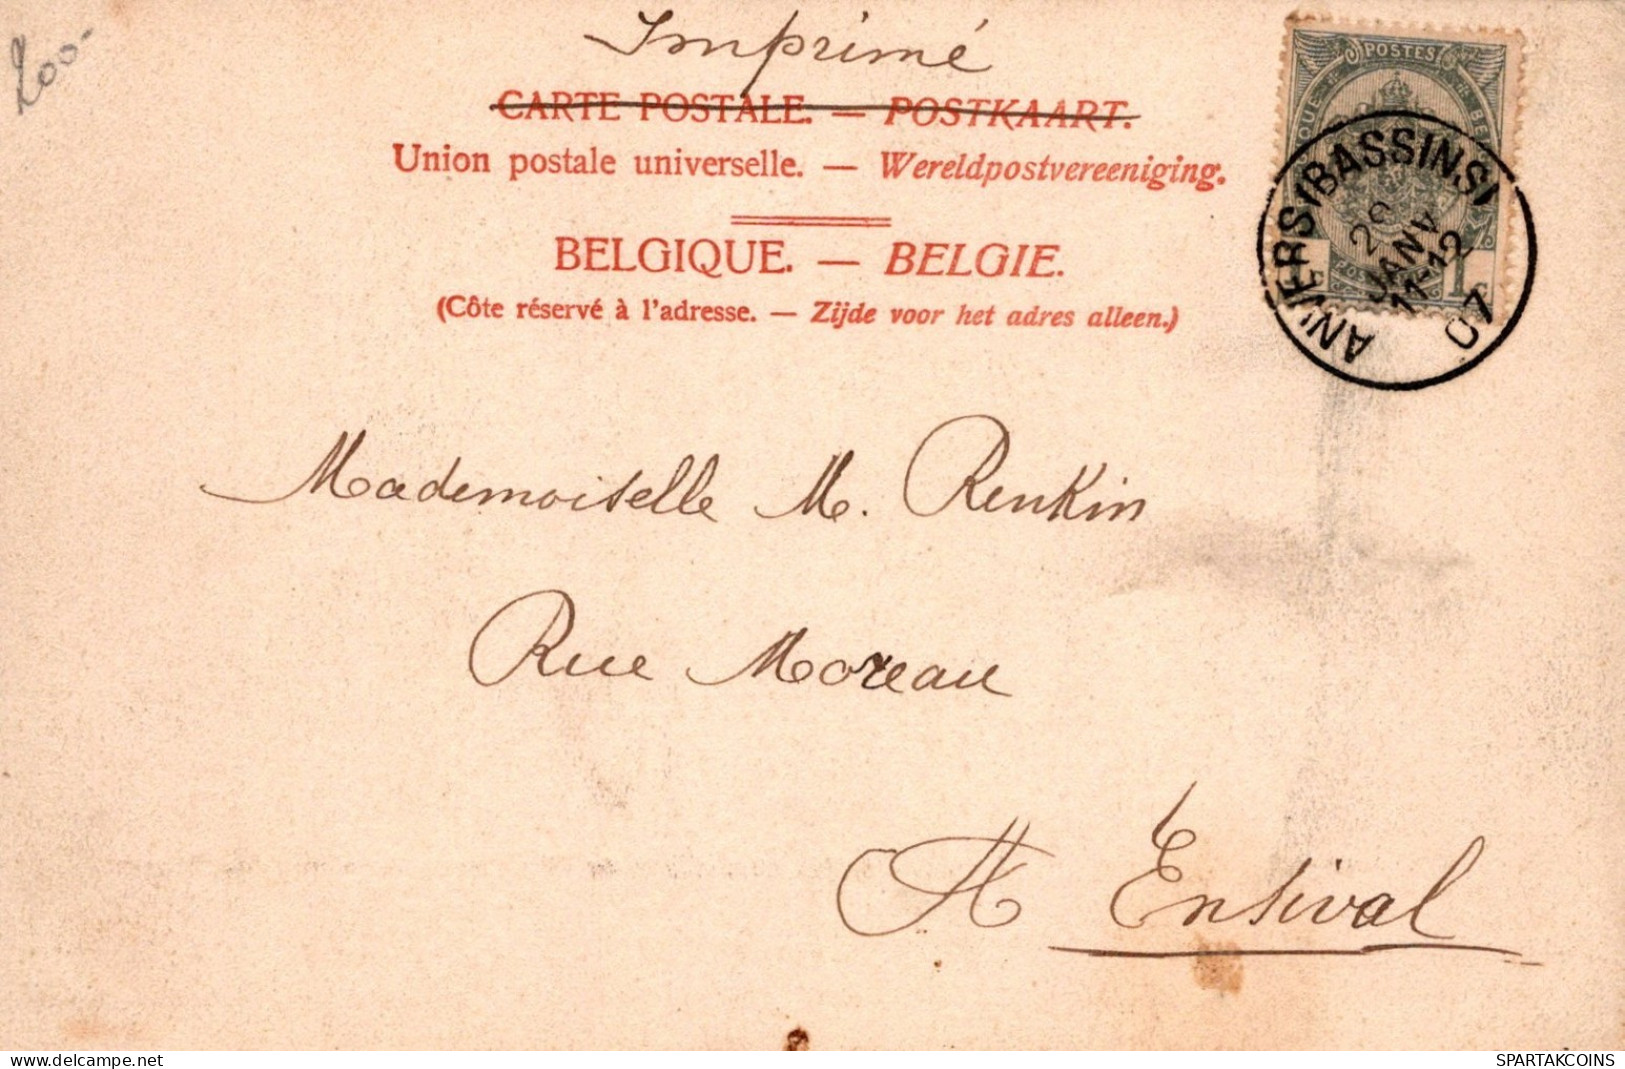 200-
Imprimé
CARTE POSTALE. — POSTKAART.
Union postale universelle. — Wereldpostvereeniging.
BELGIQUE. — BELGIE.
(Côte réservé à l'adresse. — Zijde voor het adres alleen.)
POSTES
ANVERS (BASSINS)
JANV
11-12
07
Mademoiselle M. Renkin
Rue Moreau
A Ensival
www.delcampe.net
SPARTAKCOINS